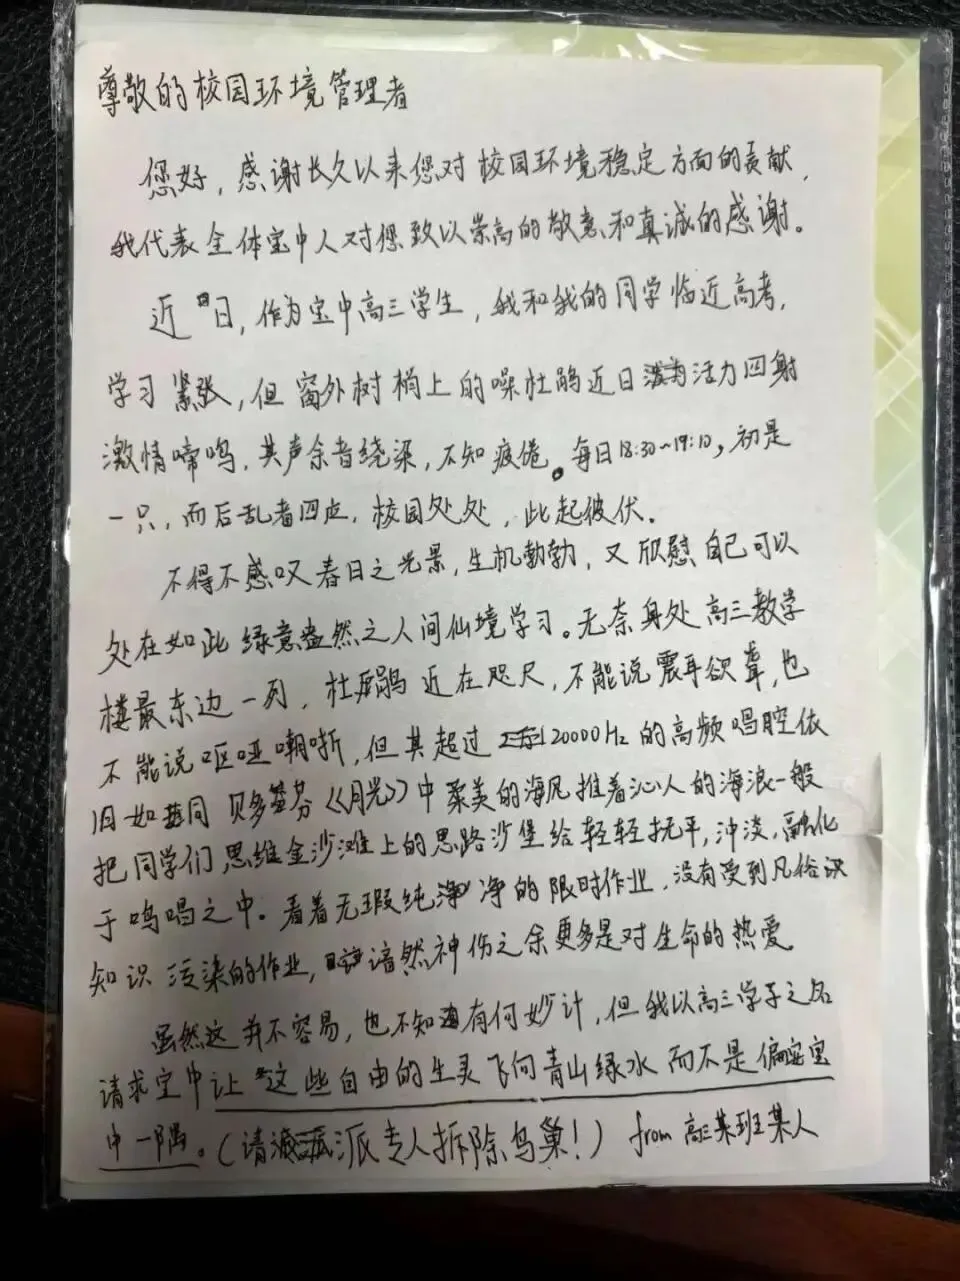 尊敬的校园环境管理者
您好，感谢长久以来您对校园环境稳定方面的贡献，
我代表全体宝中人对您致以崇高的敬意和真诚的感谢。
近日，作为宝中高三学生，我和我的同学临近高考，
学习紧张，但窗外树梢上的噪杜鹃近日活力四射
激情啼鸣，其声余音绕梁，不知疲倦。每日18:30~19:10，初是
一只，而后乱者四点，校园处处，此起彼伏。
不得不感叹春日之光景，生机勃勃，又欣慰自己可以
处在如此绿意盎然之人间仙境学习。无奈身处高三教学
楼最东边一列，杜鹃近在咫尺，不能说震耳欲聋，也
不能说呕哑嘲哳，但其超过20000Hz的高频唱腔依
旧如同贝多芬《月光》中柔美的海风推着沁人的海浪一般
把同学们思维金沙滩上的思路沙堡给轻轻抚平，冲淡，融化
于鸣唱之中。看着无瑕纯净的限时作业，没有受到凡俗
知识污染的作业，黯然神伤之余更多是对生命的热爱
虽然这并不容易，也不知有何妙计，但我以高三学子之名
请求宝中让这些自由的生灵飞向青山绿水而不是偏安宝
中一隅。（请派专人拆除鸟巢！） from 高三某班某人